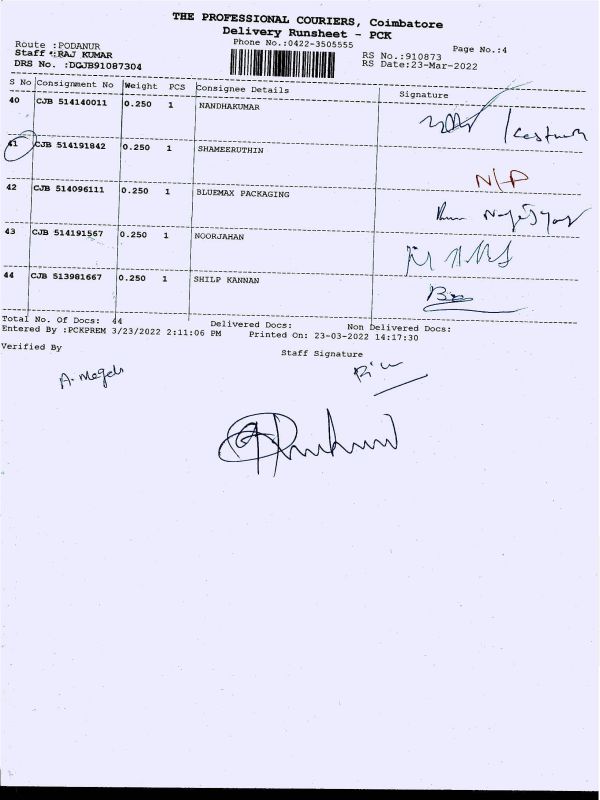 THE PROFESSIONAL COURIERS, Coimbatore
Delivery Runsheet - PCK
Phone No.:0422-3505555
Page No.:4
Route :PODANUR
Staff :RAJ KUMAR
DRS No. :DGJB91087304
RS No.:910873
RS Date:23-Mar-2022
S No Consignment No Weight PCS Consignee Details Signature
40 CJB 514140011 0.250 1 NANDHAKUMAR
41 CJB 514191842 0.250 1 SHAMEERUTHIN N/P
42 CJB 514096111 0.250 1 BLUEMAX PACKAGING
43 CJB 514191567 0.250 1 NOORJAHAN
44 CJB 513981667 0.250 1 SHILP KANNAN
Total No. Of Docs: 44 Delivered Docs: Non Delivered Docs:
Entered By :PCKPREM 3/23/2022 2:11:06 PM Printed On: 23-03-2022 14:17:30
Verified By Staff Signature